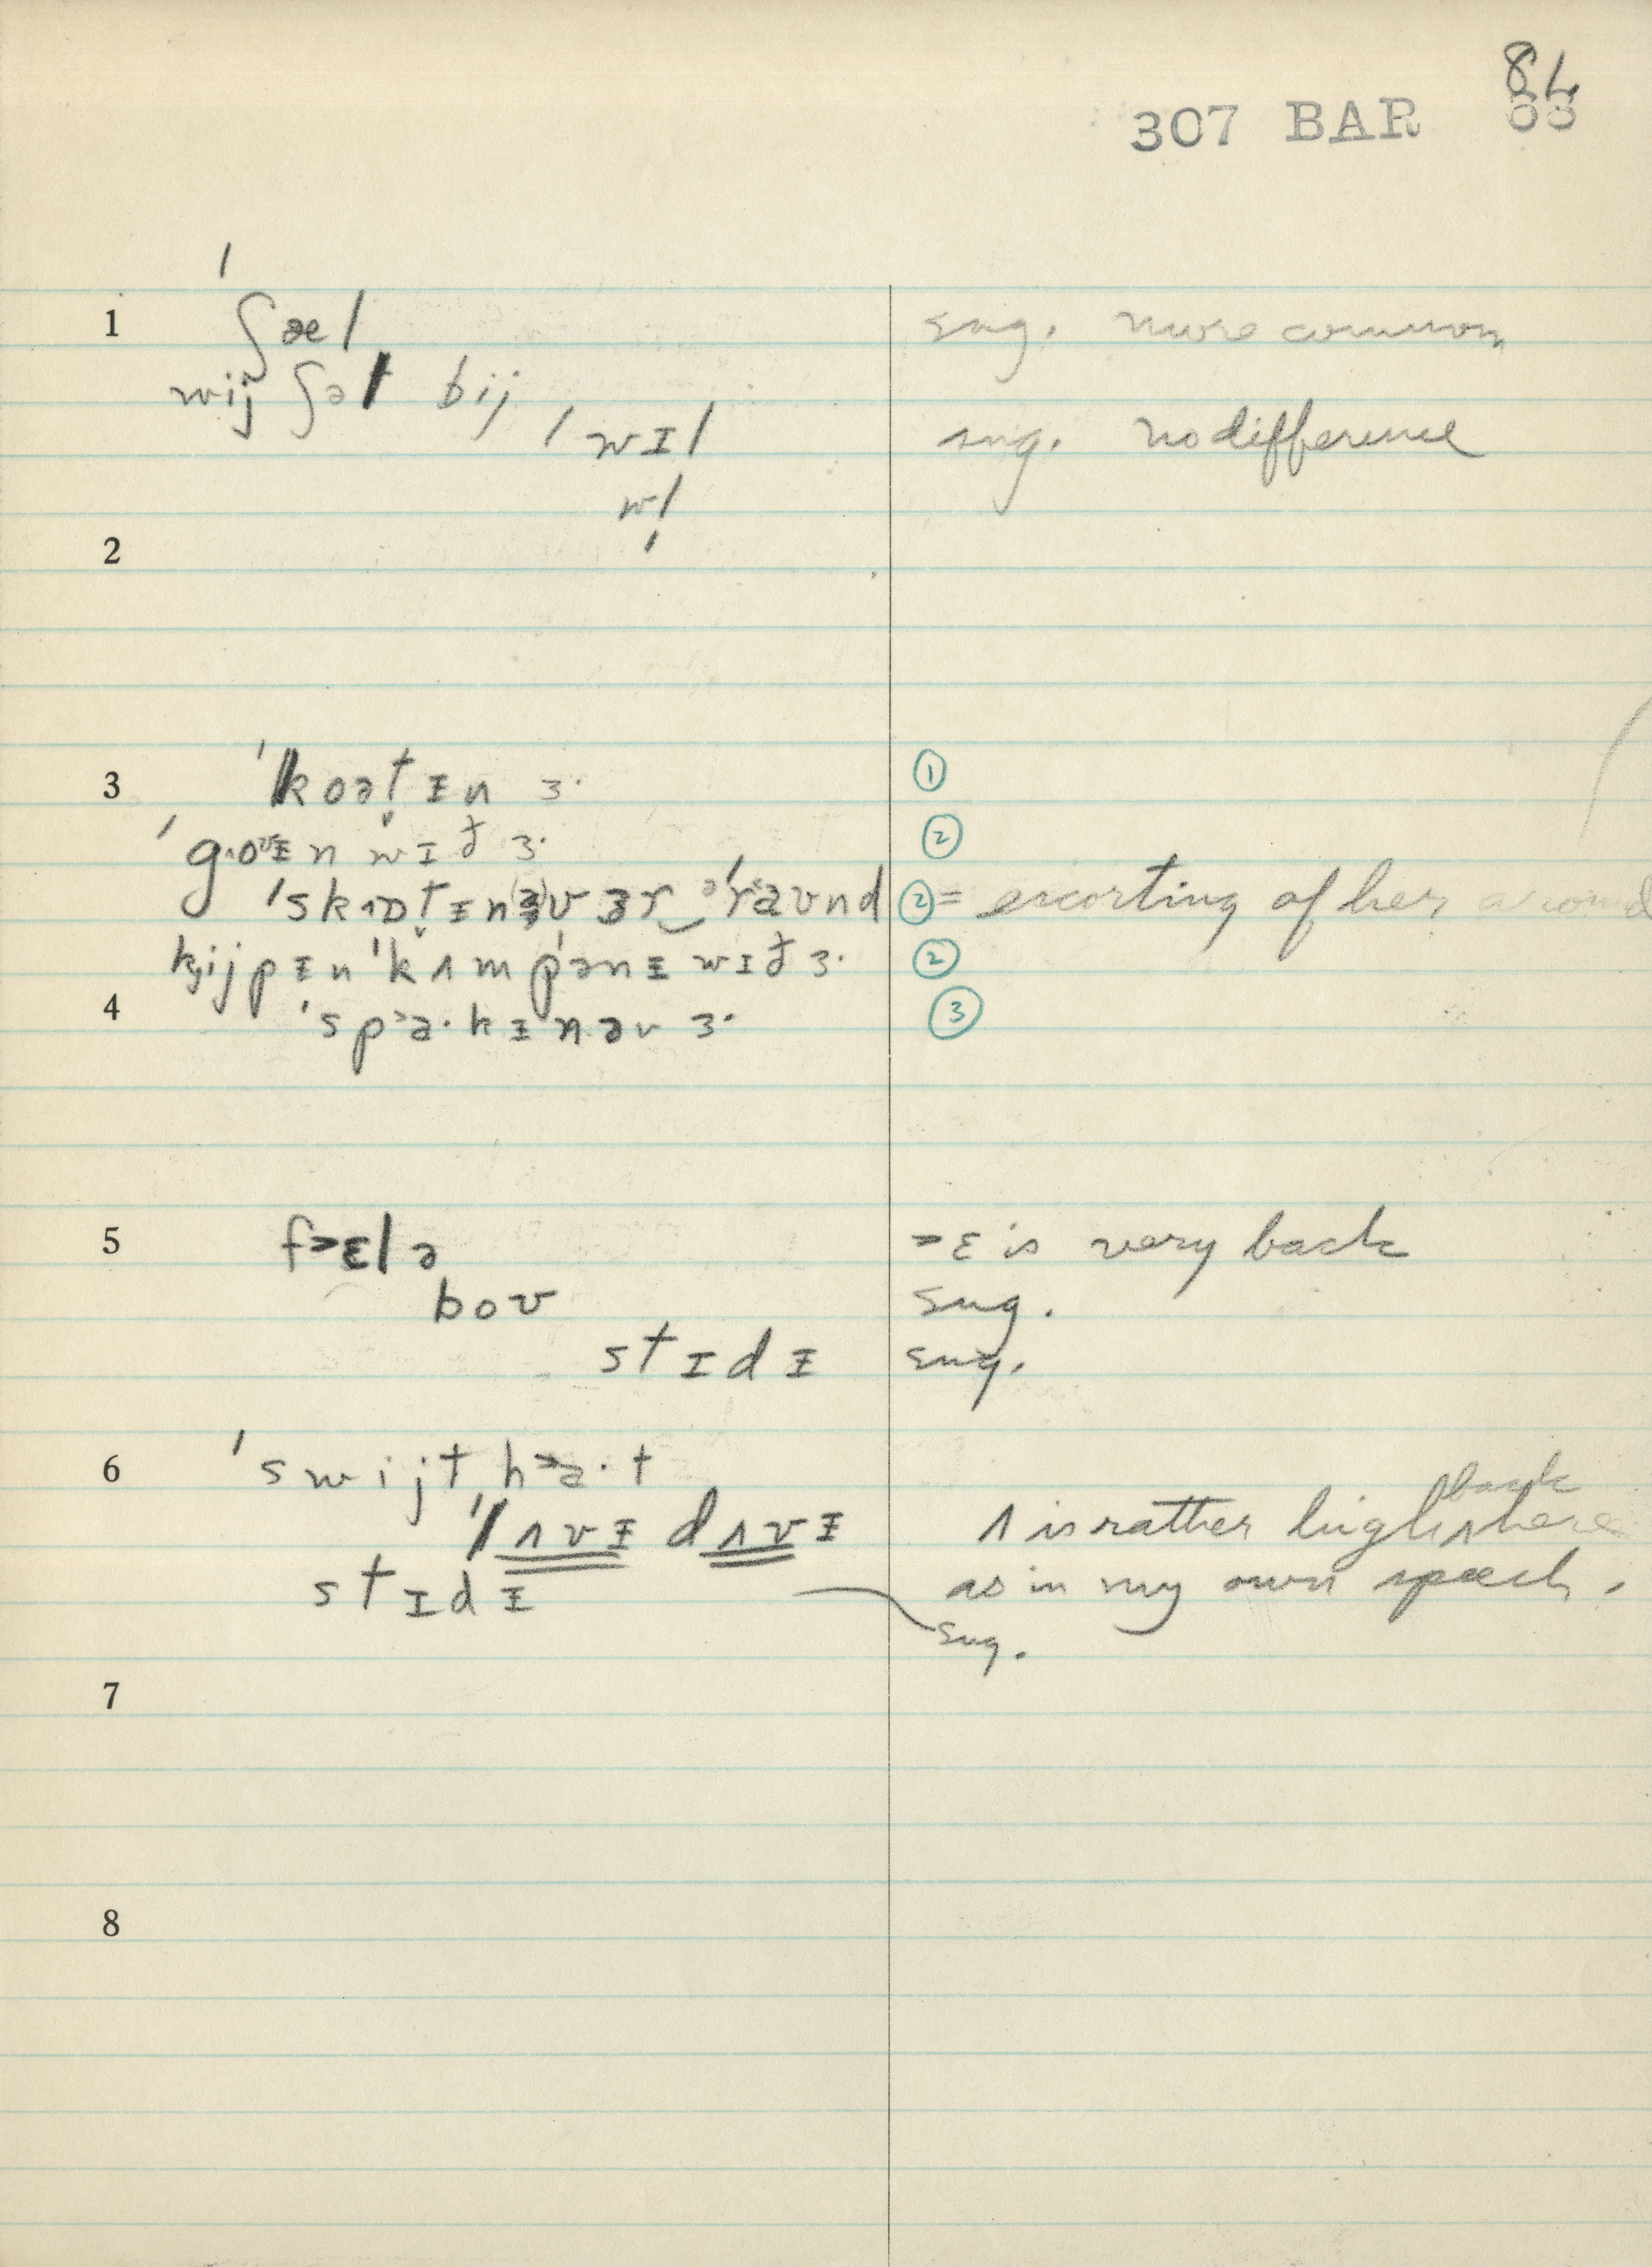 84
307 BAR 83
1 ˈʃæl sug. more common
wij ʃəl bij
ˈwɪl sug. no difference
wl̩
2
3 ˈkoət̬ɪ̵n ɜ· ①
ˈgoʊɪ̵n wɪð ɜ· ②
ˈskɒt̬ɪ̵n əv ɜr əˈraʊnd ② = escorting of her around
kijpɪ̵n ˈkʌmpənɪ̵ wɪð ɜ· ②
4 ˈspa·kɪ̵n əv ɜ· ③
5 f˃ɛlə ˃ɛ is very back
boʊ sug.
stɪdɪ̵ sug.
6 ˈswijt h˃a·t
ˈlʌvɪ̵ dʌvɪ̵ ʌ is rather high back here
stɪdɪ̵ as in my own speech.
sug.
7
8